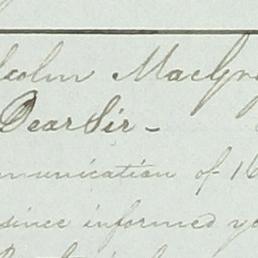 colm MacGre
Dear Sir -
munication of 16
since informed yo